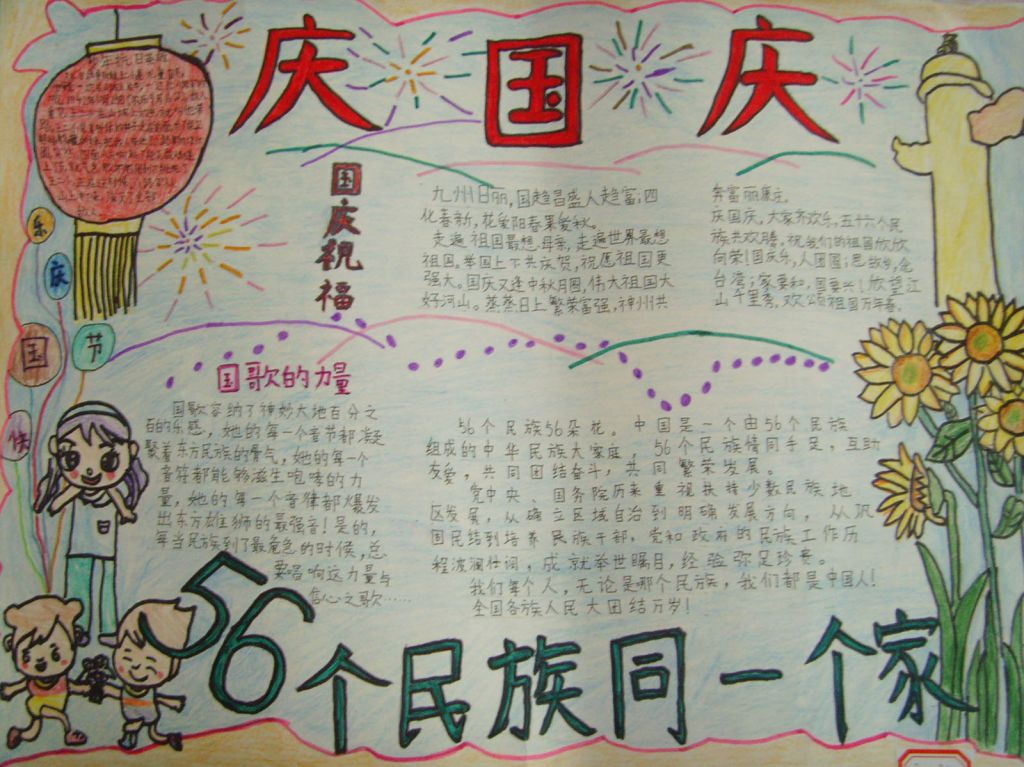 庆国庆
乐
庆
国
节
快
国庆祝福
九州日丽,国趋昌盛人趋富;四
化春新,花爱阳春果爱秋。
走遍祖国最想母亲,走遍世界最想
祖国。举国上下共庆贺,祝愿祖国更
强大。国庆又逢中秋月圆,伟大祖国大
好河山。蒸蒸日上繁荣富强,神州共
奔富丽康庄。
庆国庆,大家齐欢乐,五十六个民
族共欢腾,祝我们的祖国欣欣
向荣!国庆乐,人团圆;思故乡,念
台湾;家要和,国要兴!欣望江
山千里秀,欢颂祖国万年春。
国歌的力量
国歌容纳了神妙大地百分之
百的乐感,她的每一个音节都凝
聚着东方民族的骨气,她的每一个
音符都能够滋生咆哮的力
量,她的每一个音律都爆发
出东方雄狮的最强音!是的,
每当民族到了最危急的时候,总
要唱响这力量与
信心之歌……
56个民族56朵花。中国是一个由56个民族
组成的中华民族大家庭,56个民族情同手足,互助
友爱,共同团结奋斗,共同繁荣发展。
党中央、国务院历来重视扶持少数民族地
区发展,从确立区域自治到明确发展方向,从巩
固民结到培养民族干部,党和政府的民族工作历
程波澜壮词,成就举世瞩目,经验弥足珍贵。
我们每个人,无论是哪个民族,我们都是中国人!
全国各族人民大团结万岁!
56个民族同一个家